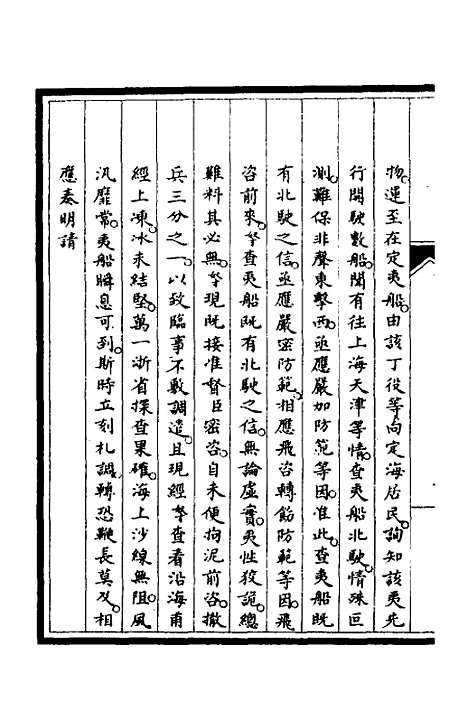 物。運至在定夷船。由該丁役等向定海居民。詢知該夷先
行開駛數船。聞有往上海天津等情。查夷船北駛。情殊叵
測。難保非聲東擊西。亟應嚴加防範等因。准此。查夷船既
有北駛之信。亟應嚴密防範。相應飛咨轉飭防範等因。飛
咨前來。等查夷船既有北駛之信。無論虛實。夷性狡詭。總
難料其必無。等現既接准督臣密咨。自未便拘泥前咨。撤
兵三分之一。以致臨事不敷調遣。且現經等查看沿海甫
經上凍。冰未結堅。萬一浙省探查果確。海上沙線無阻。風
汛靡常。夷船瞬息可到。斯時立刻札調。轉恐鞭長莫及。相
應奏明請